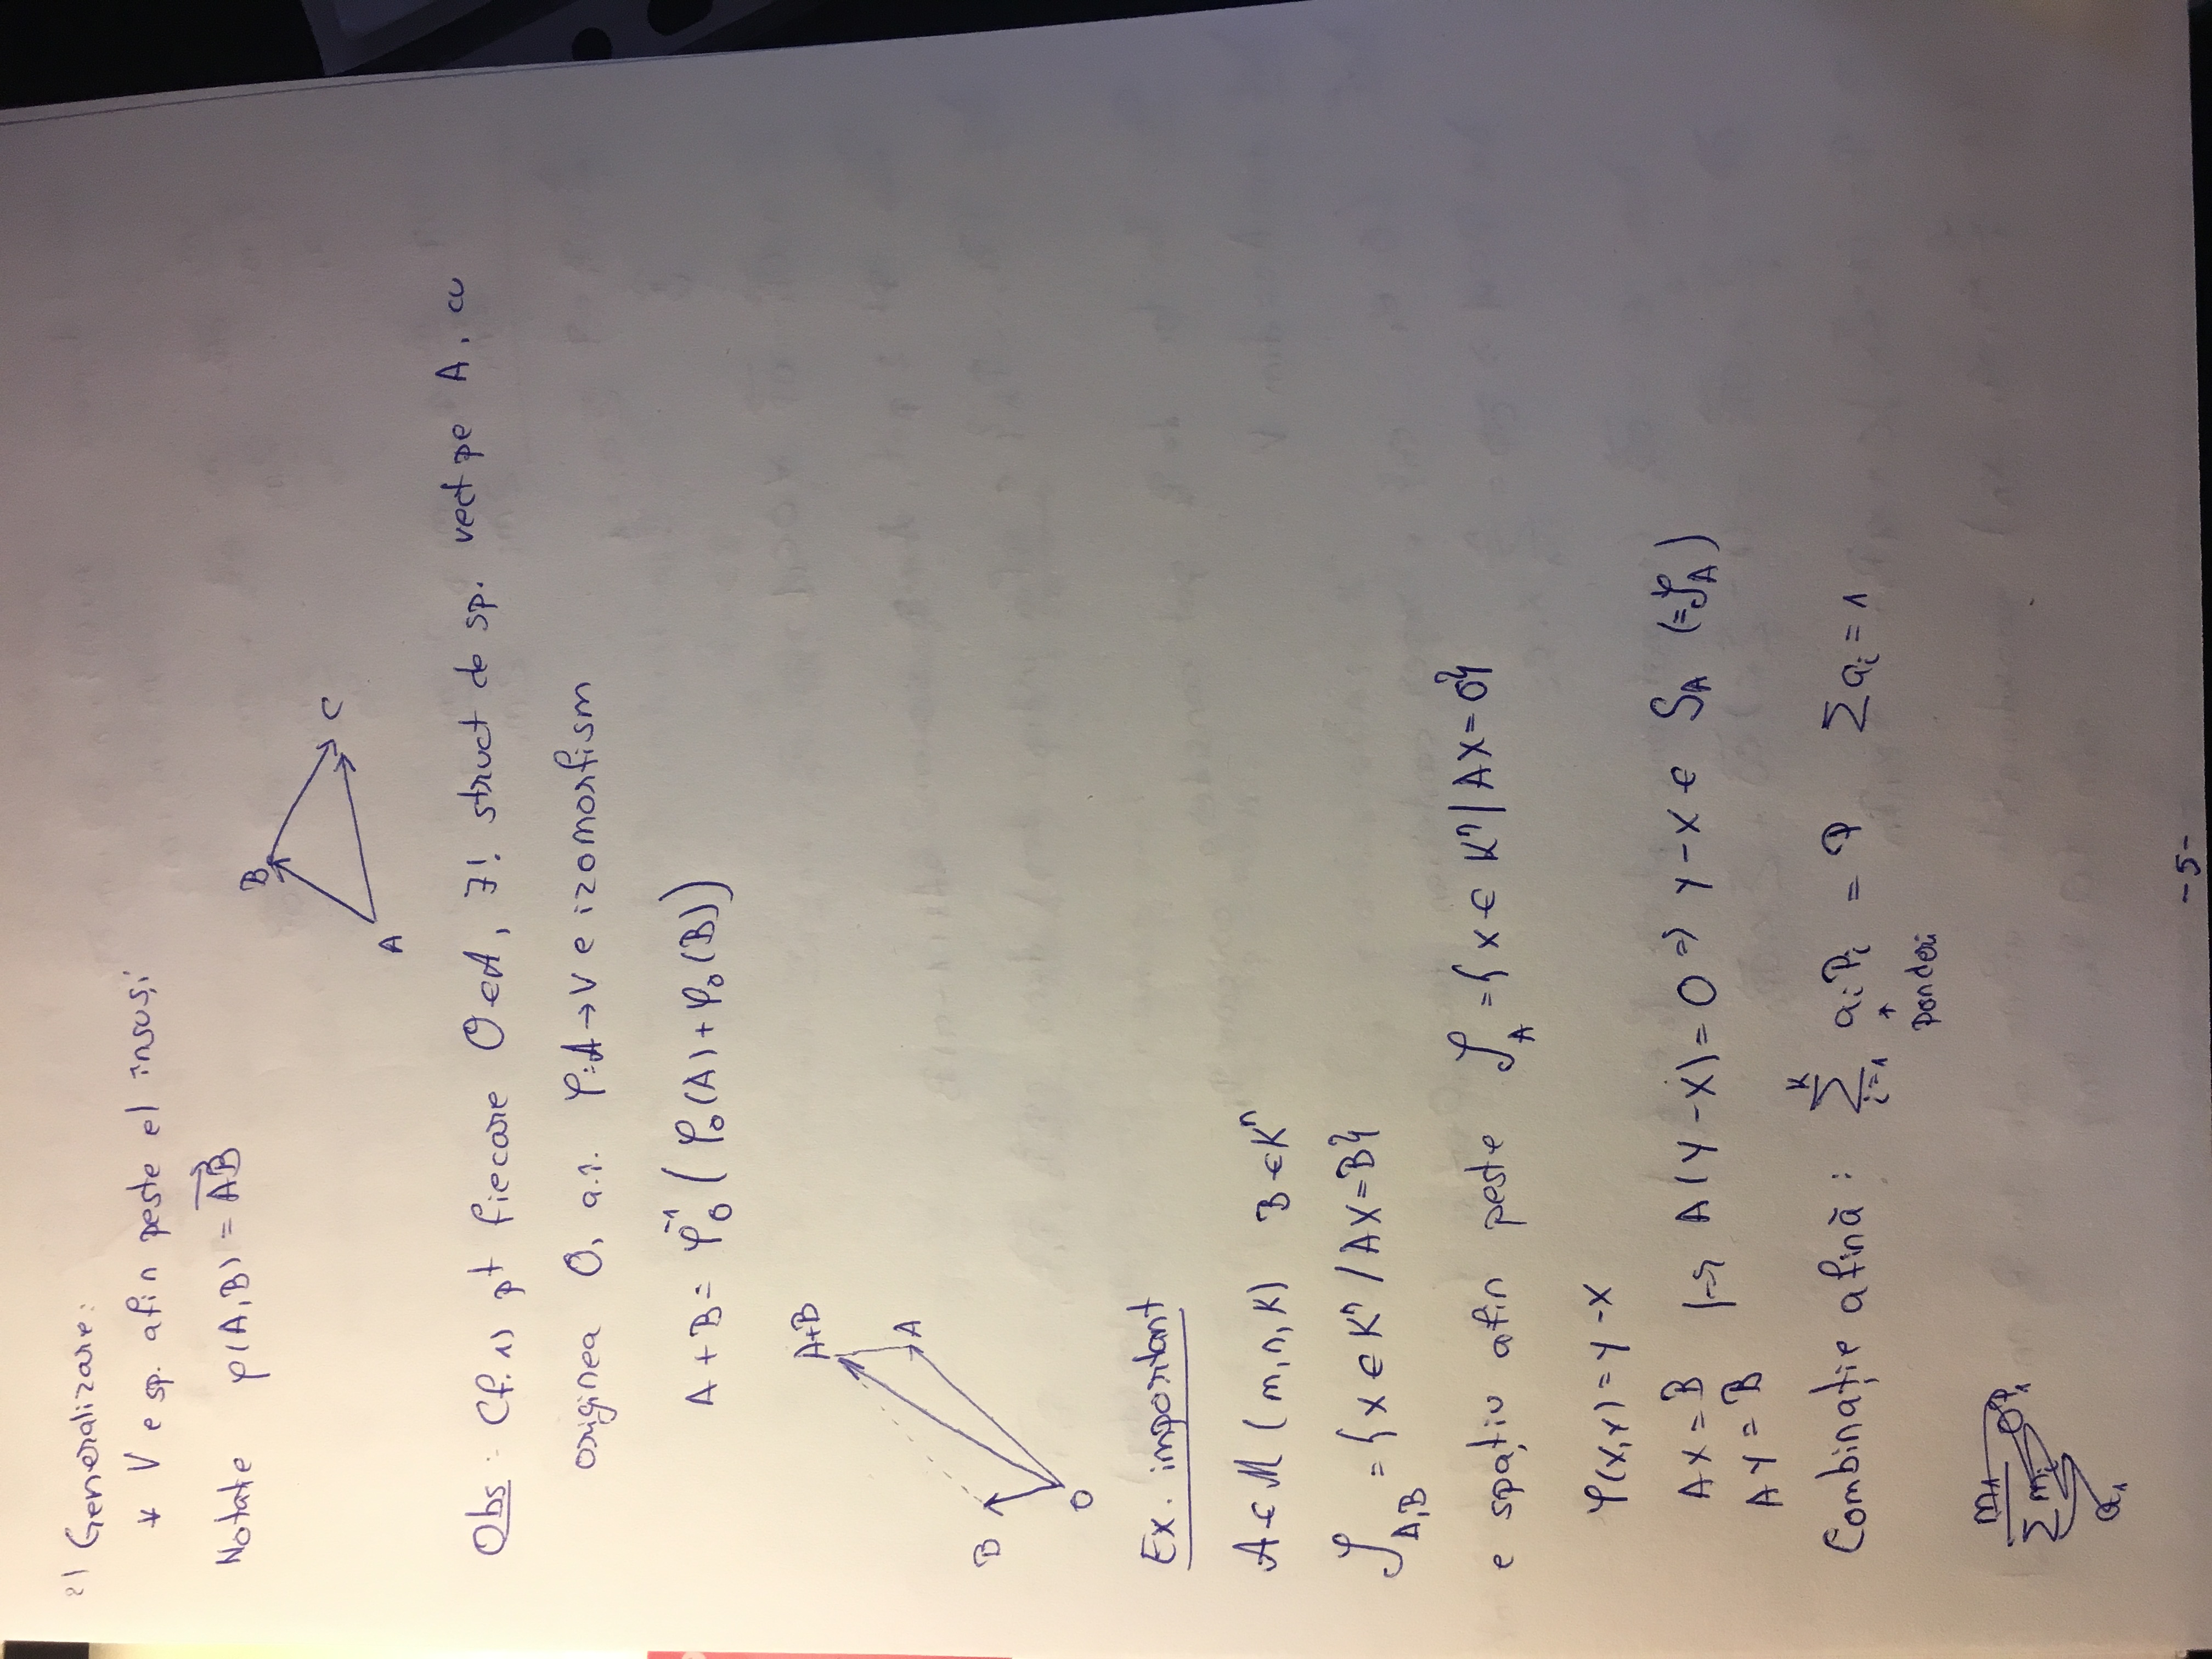 2) Generalizare:
* V e sp. afin peste el însuși
Notate φ(A,B) = \overrightarrow{AB}
B
C
A
Obs: Cf. 1) pt fiecare O∈A, ∃! struct de sp. vect pe A, cu
originea O, a.î. φ:A→V e izomorfism
A + B = φ_O^{-1} ( φ_O(A) + φ_O(B) )
A+B
A
B
O
Ex. important
A ∈ M (m,n,K) B ∈ K^n
𝒮_{A,B} = { x ∈ K^n / AX=B}
e spațiu afin peste 𝒮_A = { x ∈ K^n | AX=0}
φ(X,Y) = Y - X
AX = B
AY = B
|=> A(Y-X) = 0 => Y-X ∈ S_A (=𝒮_A)
Combinație afină: \sum_{i=1}^{K} a_i P_i = P Σa_i = 1
↑
ponderi
m_1
Σ m_i
OP_1
a_1
-5-